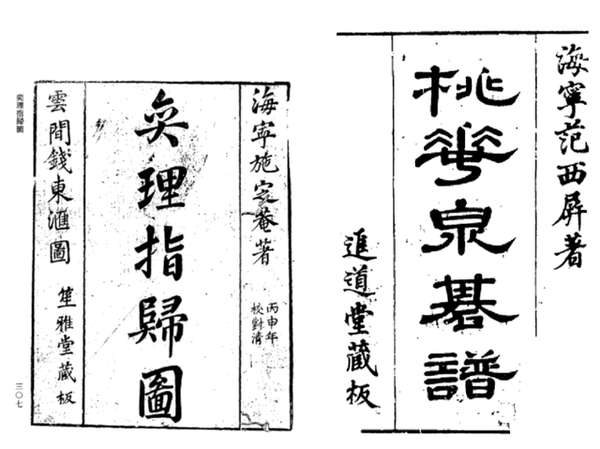 海寧范西屏著
桃華泉棊譜
進道堂藏板
海寧施定菴著
丙申年
校對清
奕理指歸圖
雲間錢東滙圖
笙雅堂藏板
奕理指歸圖
三〇七